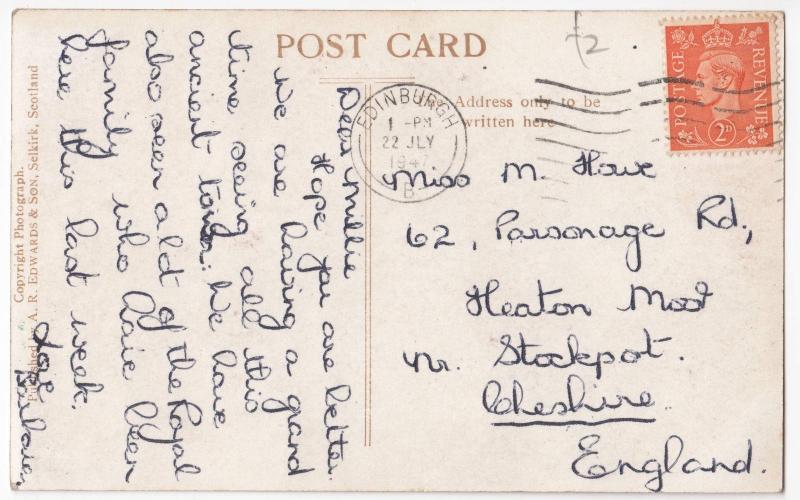 POST CARD
The Address only to be
written here
Dear Millie
Hope you are better.
We are having a grand
time seeing all this
ancient town. We have
also seen a lot of the Royal
family who have been
here this last week.
Love
Copyright Photograph.
Published by A. R. EDWARDS & SON, Selkirk, Scotland
EDINBURGH
1 - PM
22 JLY
1947
B
POSTAGE
REVENUE
2D
½
Miss M. Howe
62, Parsonage Rd,
Heaton Moot
Nr. Stockpot.
Cheshire
England.